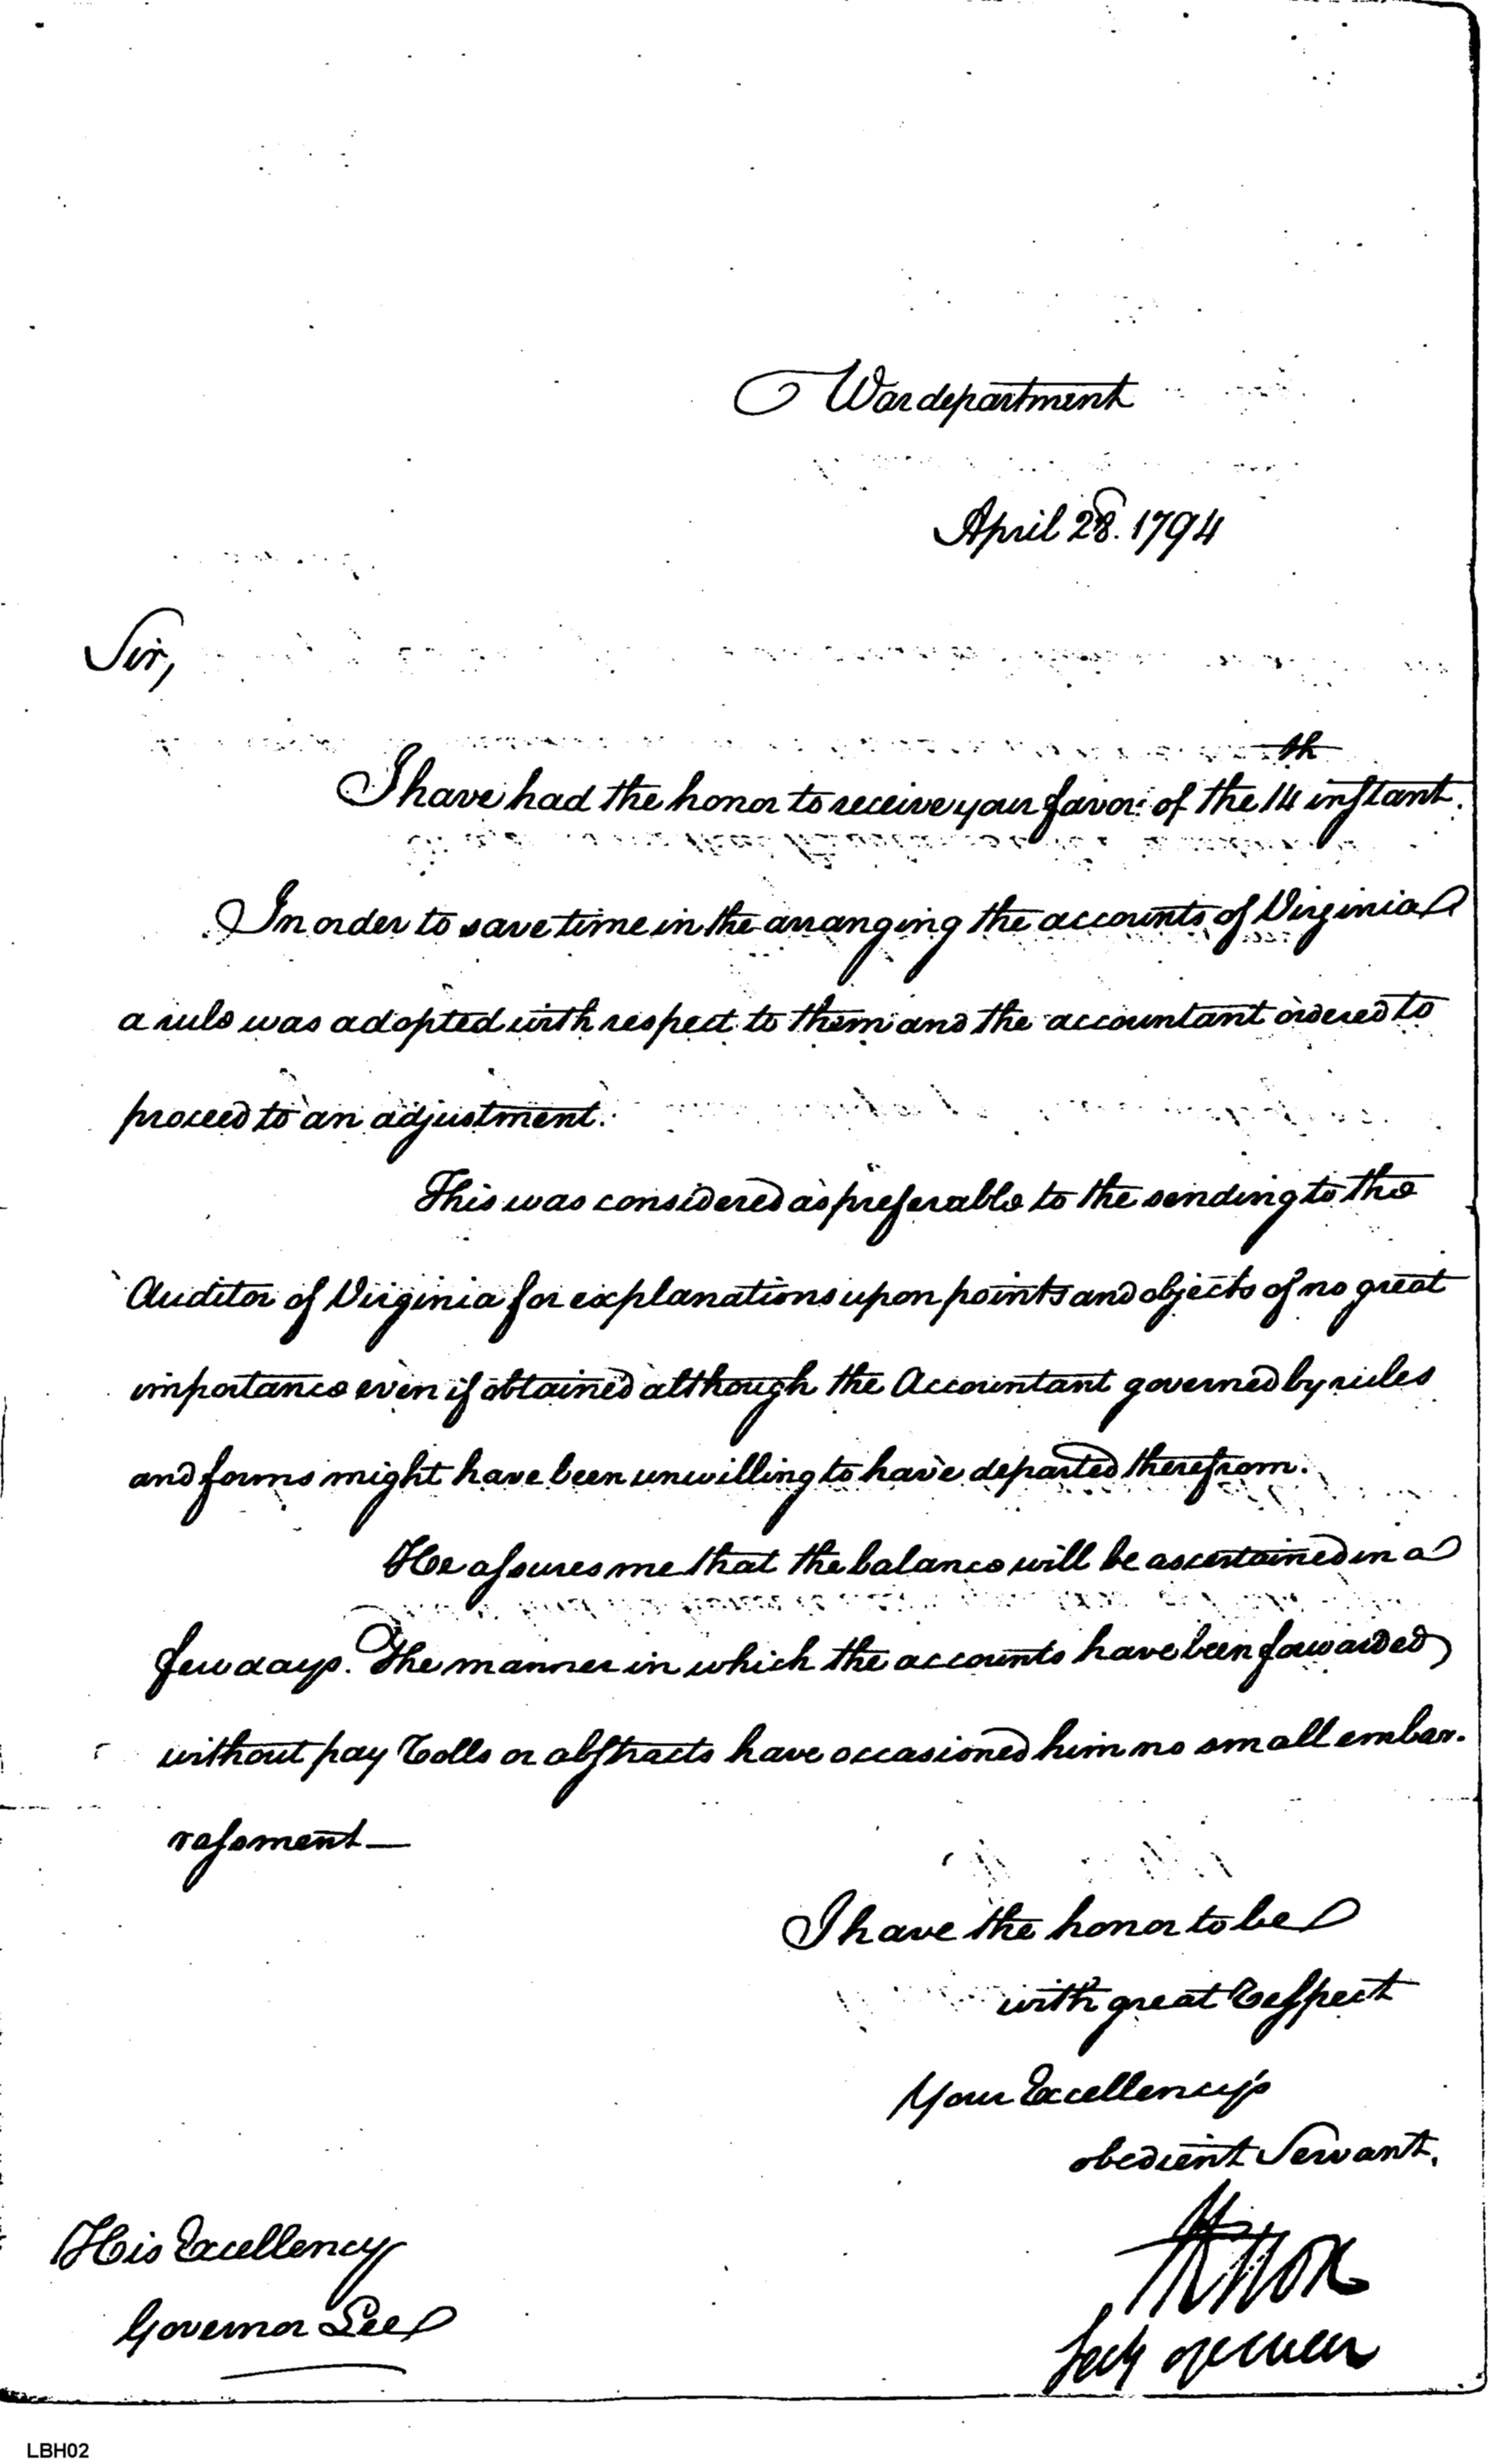 War department
April 28. 1794
Sir,
I have had the honor to receive your favor of the 14th instant.
In order to save time in the arranging the accounts of Virginia
a rule was adopted with respect to them and the accountant ordered to
proceed to an adjustment.
This was considered as preferable to the sending to the
Auditor of Virginia for explanations upon points and objects of no great
importance even if obtained although the Accountant governed by rules
and forms might have been unwilling to have departed therefrom.
He assures me that the balance will be ascertained in a
few days. The manner in which the accounts have been forwarded
without pay Rolls or abstracts have occasioned him no small embar-
rassment—
I have the honor to be
with great Respect
Your Excellency's
obedient Servant.
HKnox
Secy of war
His Excellency
Governor Lee
LBH02